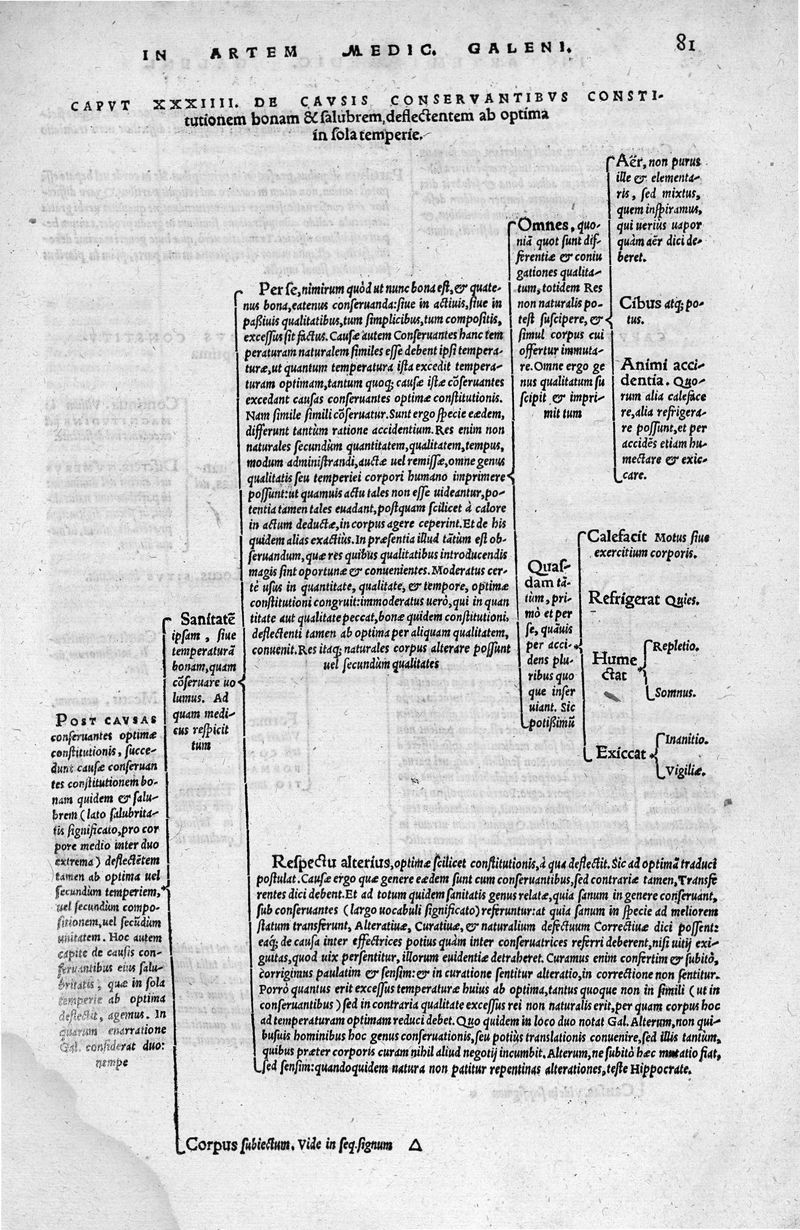 IN ARTEM MEDIC. GALENI. 81
CAPVT XXXIIII. DE CAVSIS CONSERVANTIBVS CONSTI-
tutionem bonam & salubrem, deflectentem ab optima
in sola temperie.
POST CAVSAS
conseruantes optimæ
constitutionis, succe-
dunt causæ conseruan
tes constitutionem bo-
nam quidem & salu-
brem (lato salubrita-
tis significato, pro cor
pore medio inter duo
extrema) deflectētem
tamen ab optima uel
secundum temperiem,
uel secundum compo-
sitionem, uel secūdum
unitatem. Hoc autem
capite de causis con-
seruantibus eius salu-
britatis, quæ in sola
temperie ab optima
deflectit, agemus. In
quarum enarratione
Gal. considerat duo:
nempe
Sanitatē
ipsam, siue
temperaturā
bonam, quam
cōseruare uo
lumus. Ad
quam medi-
cus respicit
tum
Per se, nimirum quòd ut nunc bona est, & quate-
nus bona, eatenus conseruanda: siue in actiuis, siue in
passiuis qualitatibus, tum simplicibus, tum compositis,
excessus sit factus. Causæ autem Conseruantes hanc tem
peraturam naturalem similes esse debent ipsi tempera-
turæ, ut quantum temperatura ista excedit tempera-
turam optimam, tantum quoq; causæ istæ cōseruantes
excedant causas conseruantes optimæ constitutionis.
Nam simile simili cōseruatur. Sunt ergo specie eædem,
differunt tantùm ratione accidentium. Res enim non
naturales secundùm quantitatem, qualitatem, tempus,
modum administrandi, auctæ uel remissæ, omne genus
qualitatis seu temperiei corpori humano imprimere
possunt: ut quamuis actu tales non esse uideantur, po-
tentia tamen tales euadant, postquam scilicet à calore
in actum deductæ, in corpus agere ceperint. Et de his
quidem alias exactiùs. In præsentia illud tātùm est ob-
seruandum, quæ res quibus qualitatibus introducendis
magis sint oportunæ & conuenientes. Moderatus cer-
tè usus in quantitate, qualitate, & tempore, optimæ
constitutioni congruit: immoderatus uerò, qui in quan
titate aut qualitate peccat, bonæ quidem constitutioni,
deflectenti tamen ab optima per aliquam qualitatem,
conuenit. Res itaq; naturales corpus alterare possunt
uel secundùm qualitates
Omnes, quo-
niā quot sunt dif-
ferentiæ & coniu
gationes qualita-
tum, totidem Res
non naturalis po-
test suscipere, &
simul corpus cui
offertur immuta-
re. Omne ergo ge
nus qualitatum su
scipit & impri-
mit tum
Aër, non purus
ille & elementa-
ris, sed mixtus,
quem inspiramus,
qui uerius uapor
quàm aër dici de-
beret.
Cibus atq; po-
tus.
Animi acci-
dentia. Quo-
rum alia caleface
re, alia refrigera-
re possunt, et per
accidēs etiam hu-
mectare & exic-
care.
Quas-
dam tā-
tùm, pri-
mò et per
se, quāuis
per acci-
dens plu-
ribus quo
que inser
uiant. Sic
potißimū
Calefacit Motus siue
exercitium corporis.
Refrigerat Quies.
Hume
ctat
Repletio.
Somnus.
Exiccat
Inanitio.
Vigiliæ.
Respectu alterius, optimæ scilicet constitutionis, à qua deflectit. Sic ad optimā traduci
postulat. Causæ ergo quæ genere eædem sunt cum conseruantibus, sed contrariæ tamen, Transfe
rentes dici debent. Et ad totum quidem sanitatis genus relatæ, quia sanum in genere conseruant,
sub conseruantes (largo uocabuli significato) referuntur: at quia sanum in specie ad meliorem
statum transferunt, Alteratiuæ, Curatiuæ, & naturalium defectuum Correctiuæ dici possent:
eaq; de causa inter effectrices potius quàm inter conseruatrices referri deberent, nisi uitij exi-
guitas, quod uix persentitur, illorum euidentiæ detraheret. Curamus enim confertim & subitò,
corrigimus paulatim & sensim: & in curatione sentitur alteratio, in correctione non sentitur.
Porrò quantus erit excessus temperaturæ huius ab optima, tantus quoque non in simili (ut in
conseruantibus) sed in contraria qualitate excessus rei non naturalis erit, per quam corpus hoc
ad temperaturam optimam reduci debet. Quo quidem in loco duo notat Gal. Alterum, non qui-
busuis hominibus hoc genus conseruationis, seu potiùs translationis conuenire, sed illis tantùm,
quibus præter corporis curam nihil aliud negotij incumbit. Alterum, ne subitò hæc mutatio fiat,
sed sensim: quandoquidem natura non patitur repentinas alterationes, teste Hippocrate.
Corpus subiectum. Vide in seq. signum △